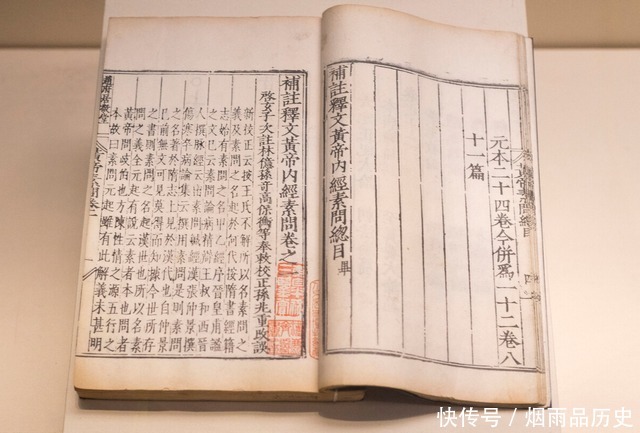 元本二十四卷今併爲一十二卷八
十一篇
補註釋文黃帝內經素問總目 畢
補註釋文黃帝內經素問卷之一
啓玄子次註林億孫奇高保衡等奉敕校正孫兆重改誤
新校正云按王氏不解所以名素問之
義及素問之名起於何代按隋書經籍
志始有素問之名甲乙經序晉皇甫謐
之文已云素問論病精辨王叔和西晉
人撰脉經云出素問鍼經漢張仲景撰
傷寒卒病論集云撰用素問是則素問
之名著於隋志上見於漢代也自仲景
已前無文可見莫得而知據今世所存
之書則素問之名起漢世也所以名素
問之義全元起有說云素者本也問者
黃帝問岐伯也方陳性情之源五行之
本故曰素問元起雖有此解義未甚明
快传号 / 烟雨品历史